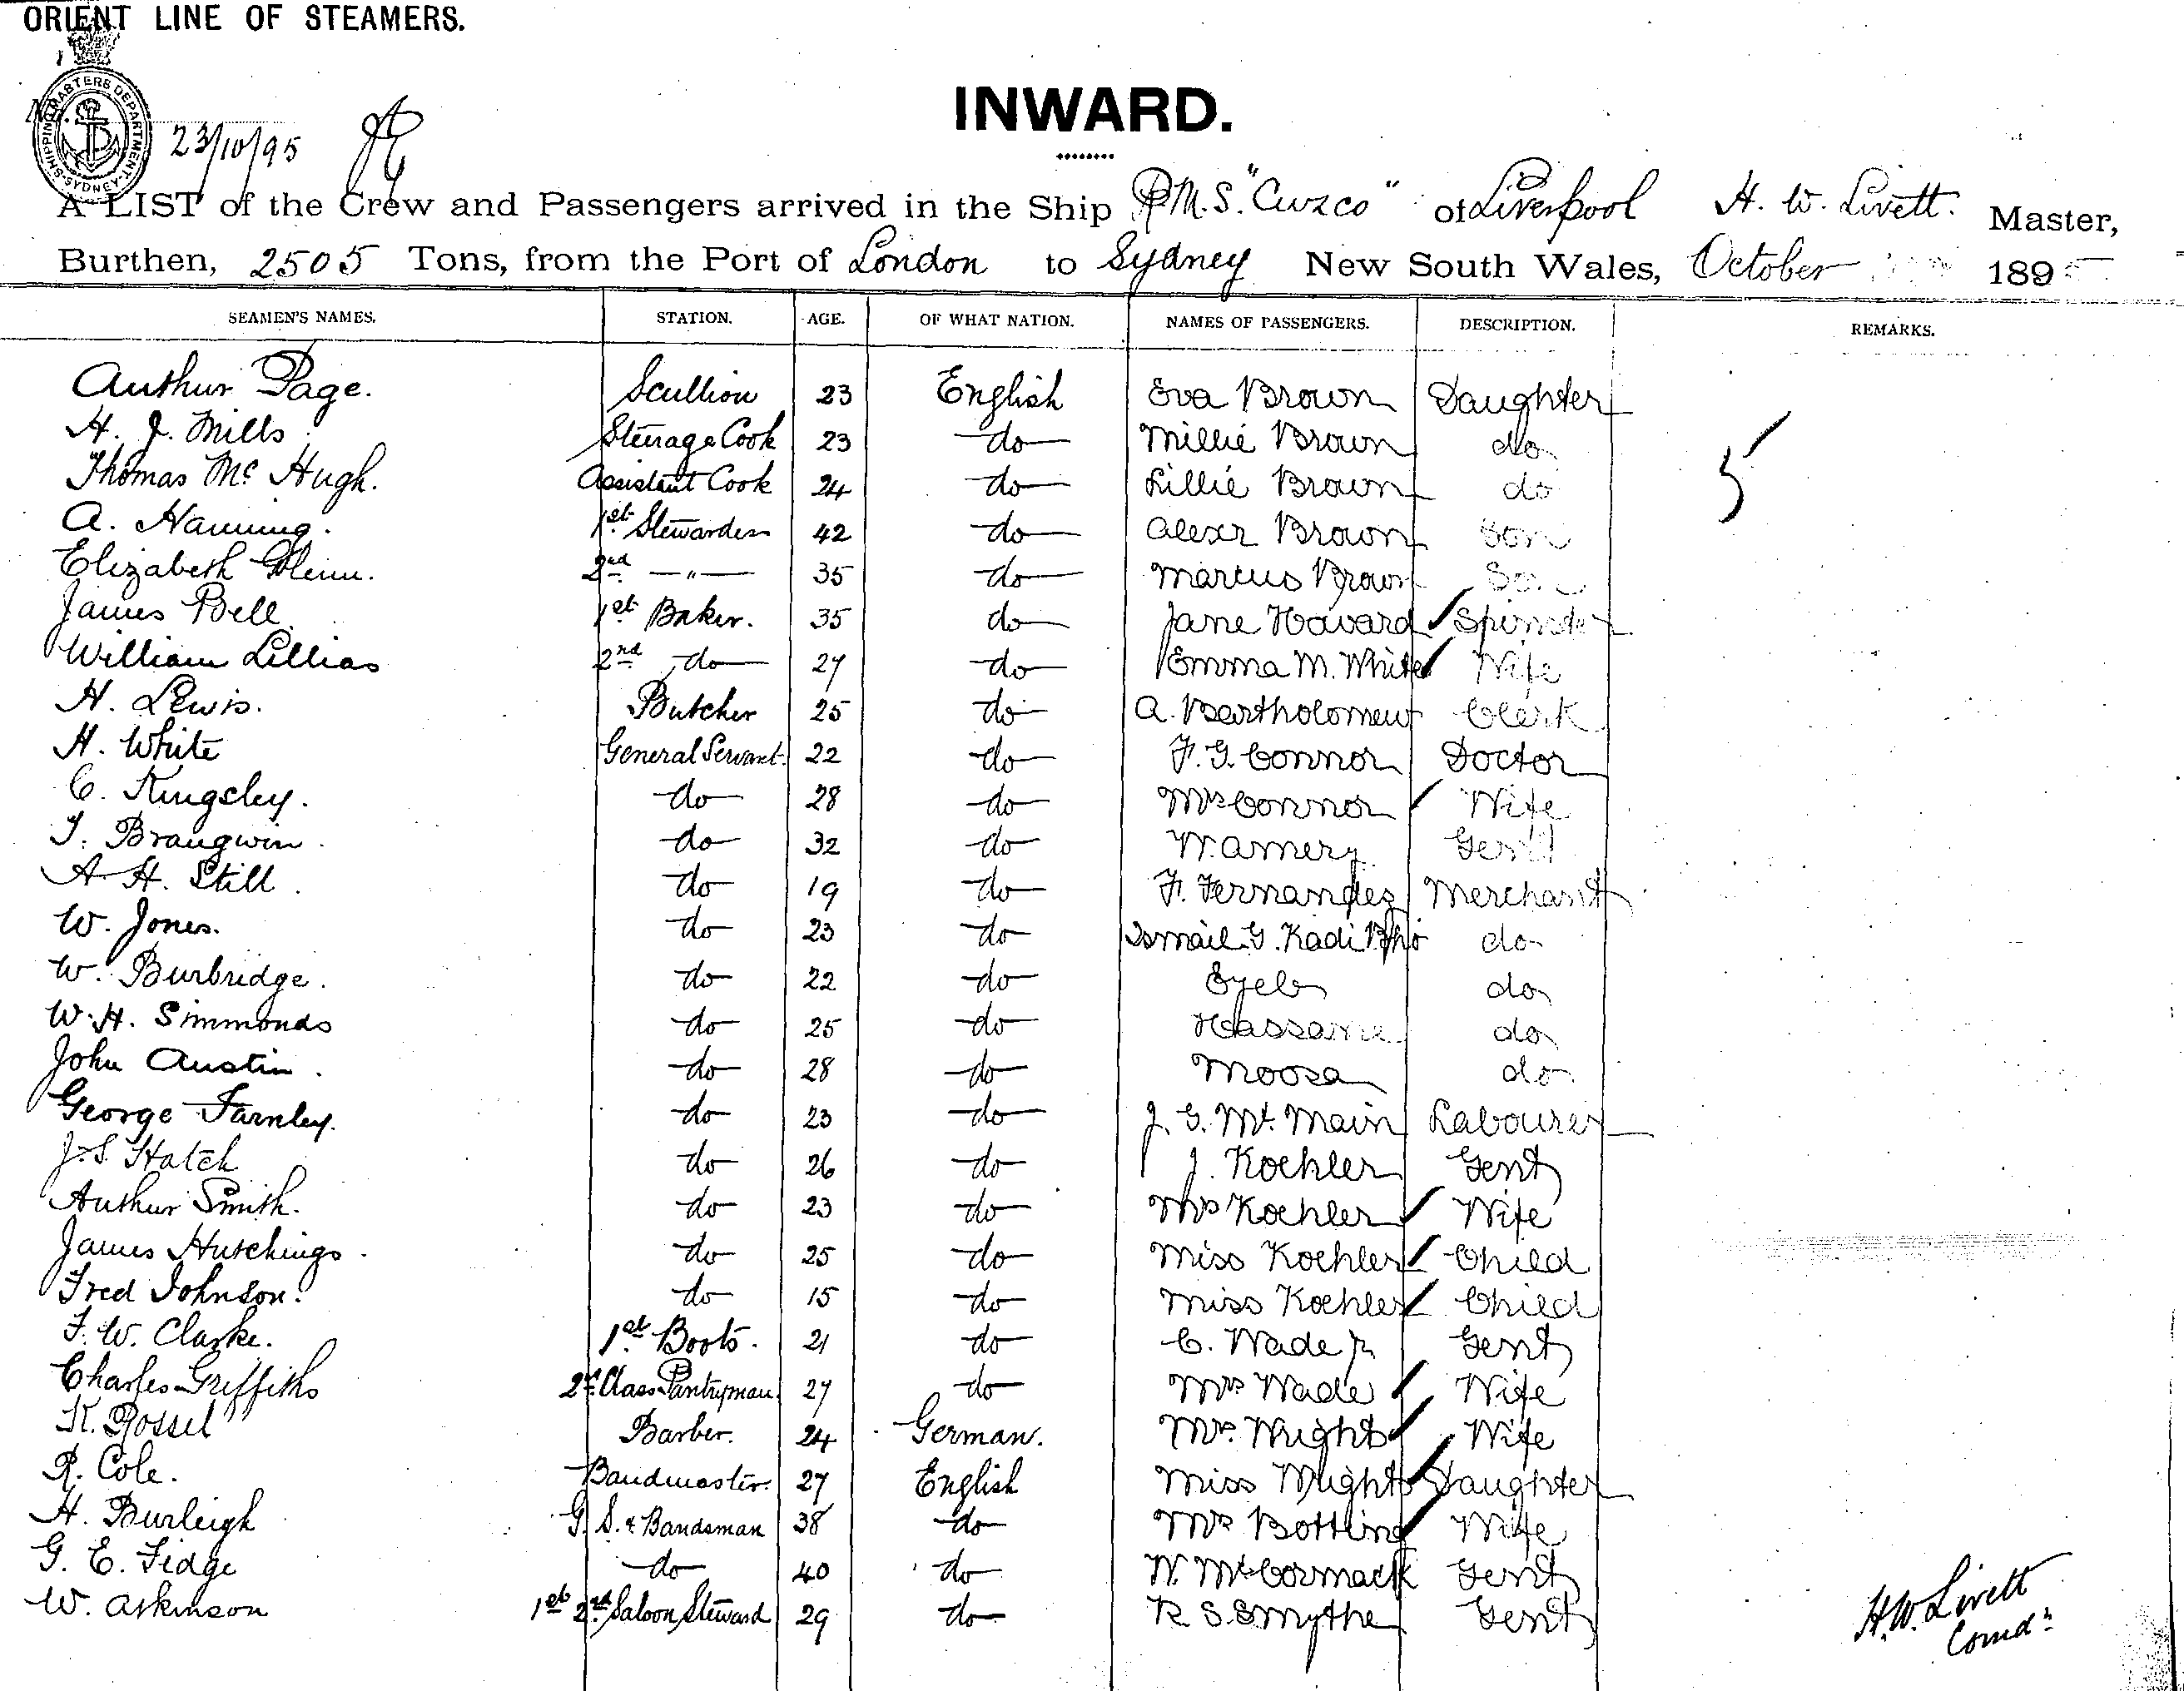 ORIENT LINE OF STEAMERS.
SHIPPING MASTERS DEPARTMENT SYDNEY
No.
23/10/95
INWARD.
A LIST of the Crew and Passengers arrived in the Ship R.M.S. "Cuzco" of Liverpool H. W. Livett. Master,
Burthen, 2505 Tons, from the Port of London to Sydney New South Wales, October 1895
SEAMEN'S NAMES. STATION. AGE. OF WHAT NATION. NAMES OF PASSENGERS. DESCRIPTION. REMARKS.
Arthur Page. Scullion 23 English Eva Brown Daughter
H. J. Mills Steerage Cook 23 do Millie Brown do 5
Thomas Mc Hugh. Assistant Cook 24 do Lillie Brown do
A. Hanning. 1st Stewardess 42 do Alexr Brown Son
Elizabeth Glenn. 2nd —"— 35 do Marcus Brown Son
James Bell. 1st Baker. 35 do Jane Havard Spinster
William Lillias 2nd do 27 do Emma M. White Wife
H. Lewis. Butcher 25 do A. Bartholomew Clerk
H. White General Servant 22 do F. G. Connor Doctor
C. Kingsley. do 28 do Mrs Connor Wife
T. Brangwin. do 32 do W. Amery Gent
A. H. Still. do 19 do F. Fernandez Merchant
W. Jones. do 23 do Ismail G. Kadi do
W. Burbridge. do 22 do do
W. H. Simmonds do 25 do do
John Austin. do 28 do Moosa do
George Farnley. do 23 do J. G. Mc Main Labourer
J. S. Hatch do 26 do J. Koehler Gent
Arthur Smith. do 23 do Mrs Koehler Wife
James Hutchings. do 25 do Miss Koehler Child
Fred Johnson. do 15 do Miss Koehler Child
F. W. Clarke. 1st Boots. 21 do C. Wade Jr Gent
Charles Griffiths 2nd Class Pantryman 27 do Mrs Wade Wife
K. Rossel Barber. 24 German. Mrs. Wright Wife
R. Cole. Bandmaster. 27 English Miss Wright Daughter
H. Burleigh G. S. & Bandsman 38 do Mrs Botting Wife
G. E. Fidge do 40 do W. McCormack Gent
W. Askinson 1st 2nd Saloon Steward 29 do R. S. Smythe Gent
H. W. Livett
Comdr